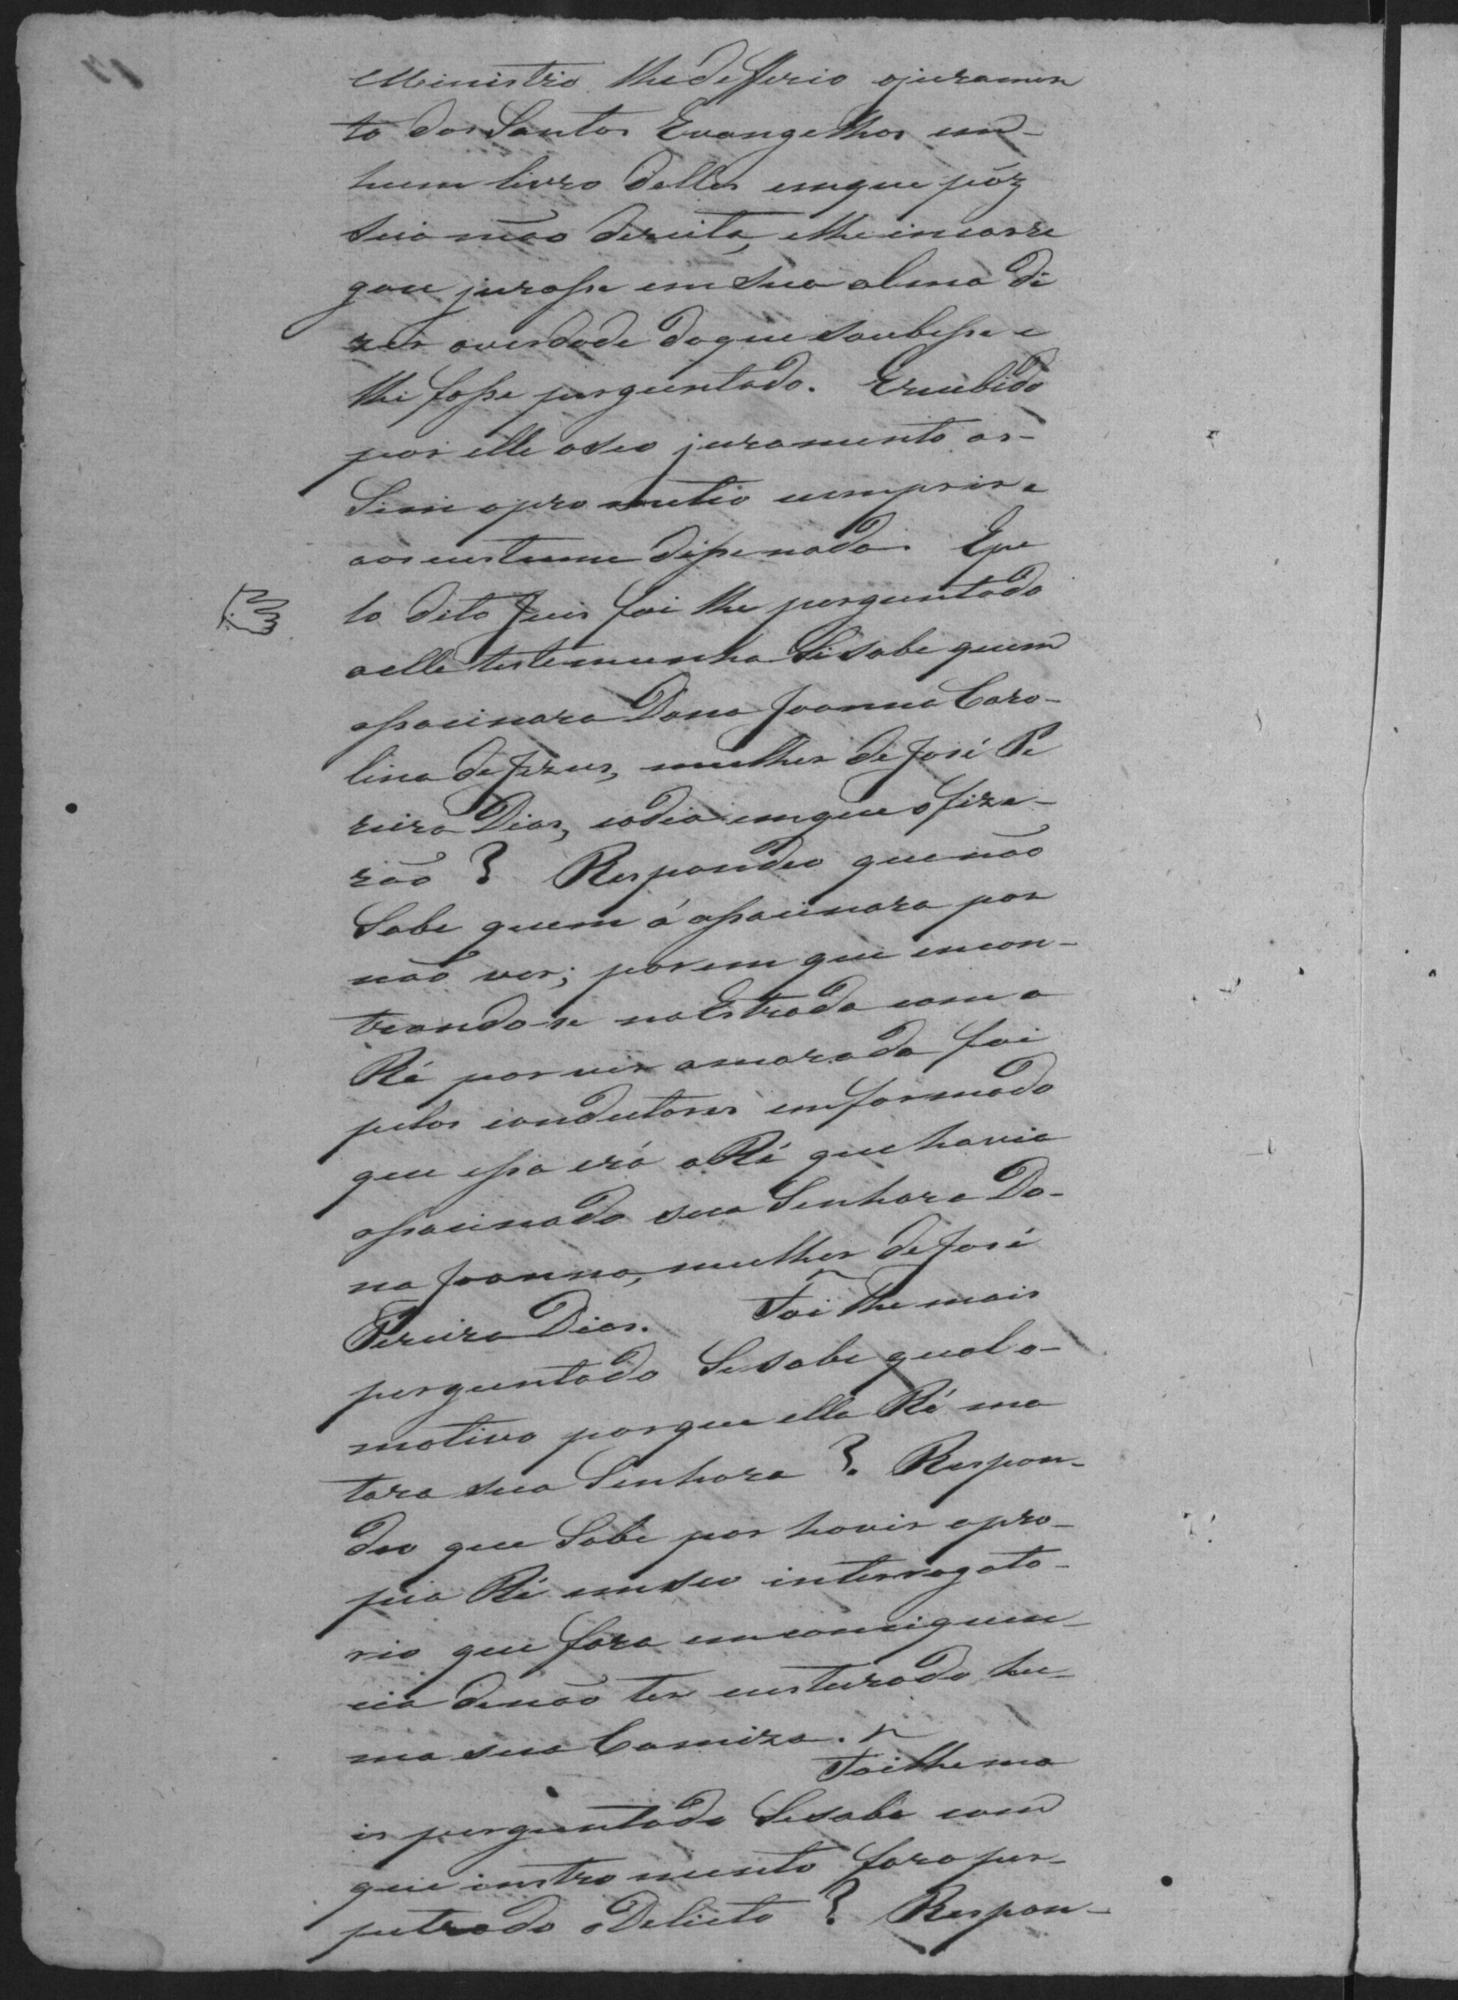 Ministro lhe defferio ojuramen
to dos Santos Evangelhos em-
hum livro delles emque pôz
sua mão dereita, elhe incarre
gou jurasse em sua alma di
zer averdade doque soubesse e
lhe fosse perguntado. Erecebido
por elle oseo juramento as-
sim oprometio comprir e
aoscustume disse nada. Epe
lo dito Juis foi lhe perguntado
aelle testemunha Sisabe quem
assacinara Dona Joanna Caro-
lina de Jezus, mulher de José Pe
reira Dias, eodia emque ofize-
rão? Respondeo que não
Sabe quem á assacinara por
não ver; porem que encon-
trando-se na Estrada com a
Ré por vir amarada foi
pelos condutores emformado
que essa erá a Ré que havia
assacinado sua Senhora Do-
na Joanna, mulher de José
Pereira Dias. Foi lhe mais
perguntado Sesabe qual o-
motivo porque ella Ré ma
tara sua Senhora? Respon-
deo que Sabe por hovir apro-
pia Ré emseo interrogato-
rio que fora emconsiguen-
cia denão ter custurado hu-
ma sua Camiza. Foilhe ma
is perguntado Sesabe com
que instromento fora per-
petrado o Delicto? Respon-